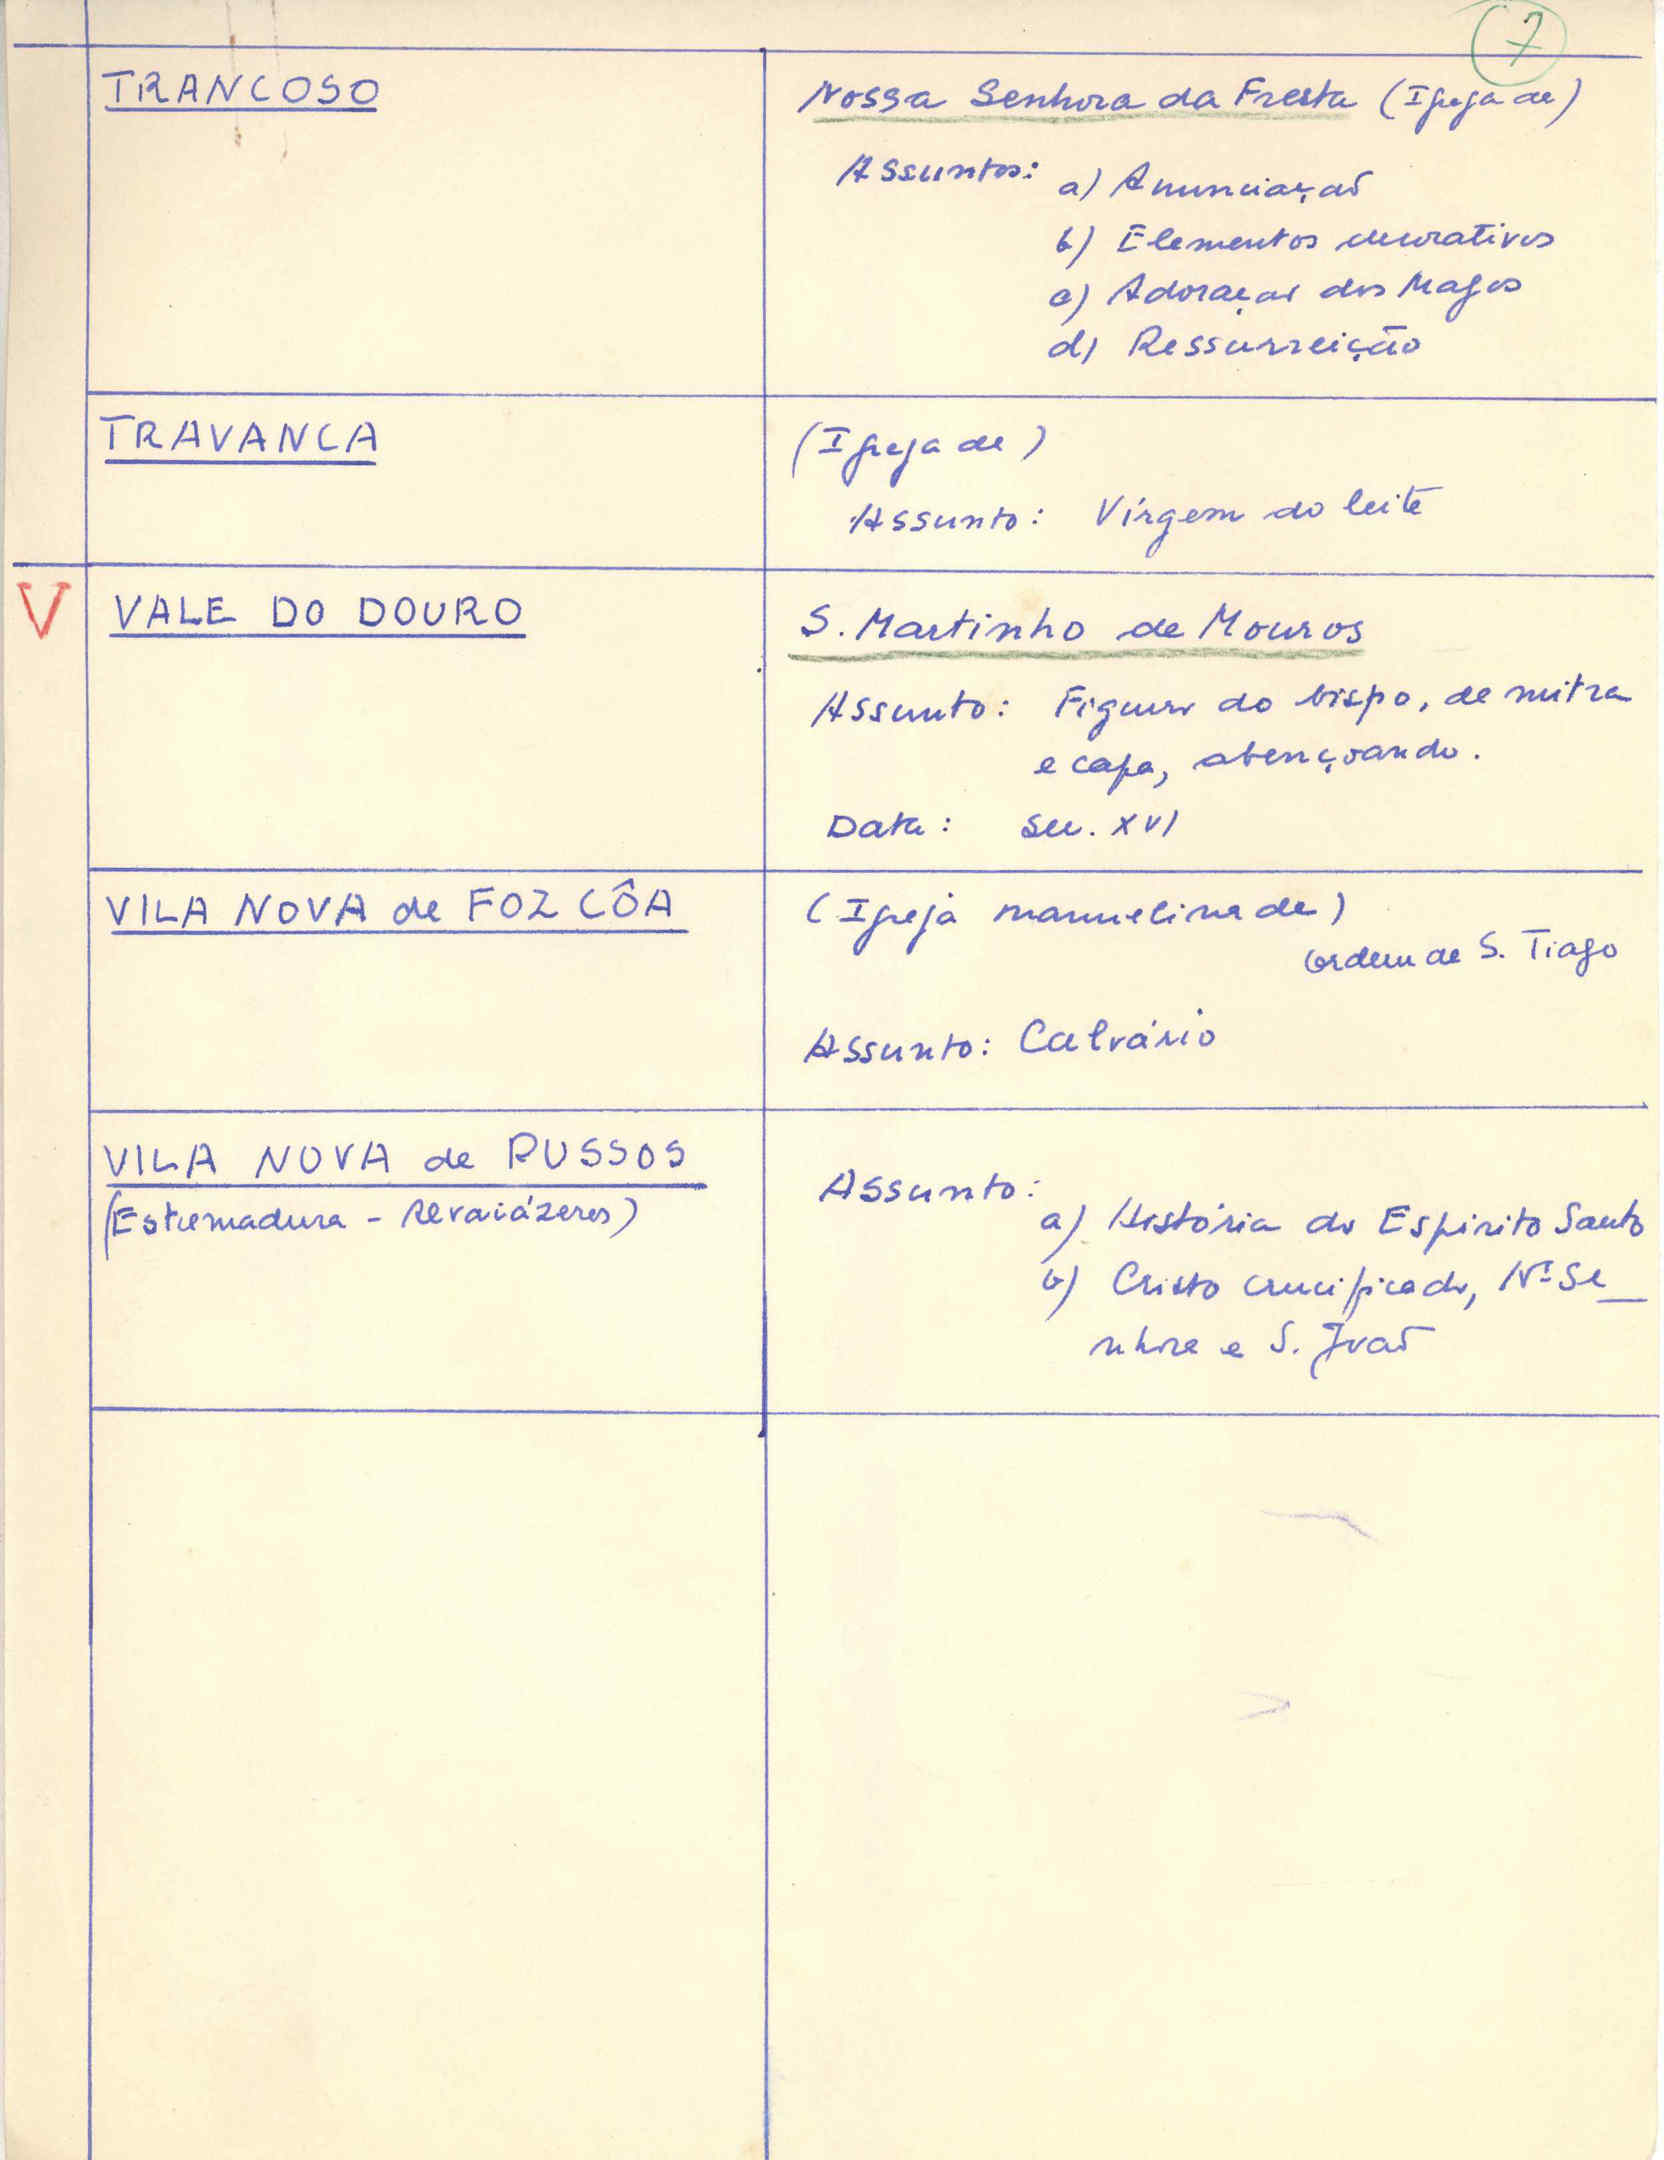 7
TRANCOSO
Nossa Senhora da Fresta (Igreja de)
Assuntos:
a) Anunciação
b) Elementos decorativos
c) Adoração dos Magos
d) Ressurreição
TRAVANCA
(Igreja de)
Assunto: Virgem do leite
V
VALE DO DOURO
S. Martinho de Mouros
Assunto: Figura do bispo, de mitra
e capa, abençoando.
Data: Séc. XVI
VILA NOVA de FOZ CÔA
(Igreja manuelina de)
Ordem de S. Tiago
Assunto: Calvário
VILA NOVA de PUSSOS
(Estremadura -
Assunto:
a) História do Espirito Santo
b) Cristo crucificado, Nª Se_
nhora e S. João